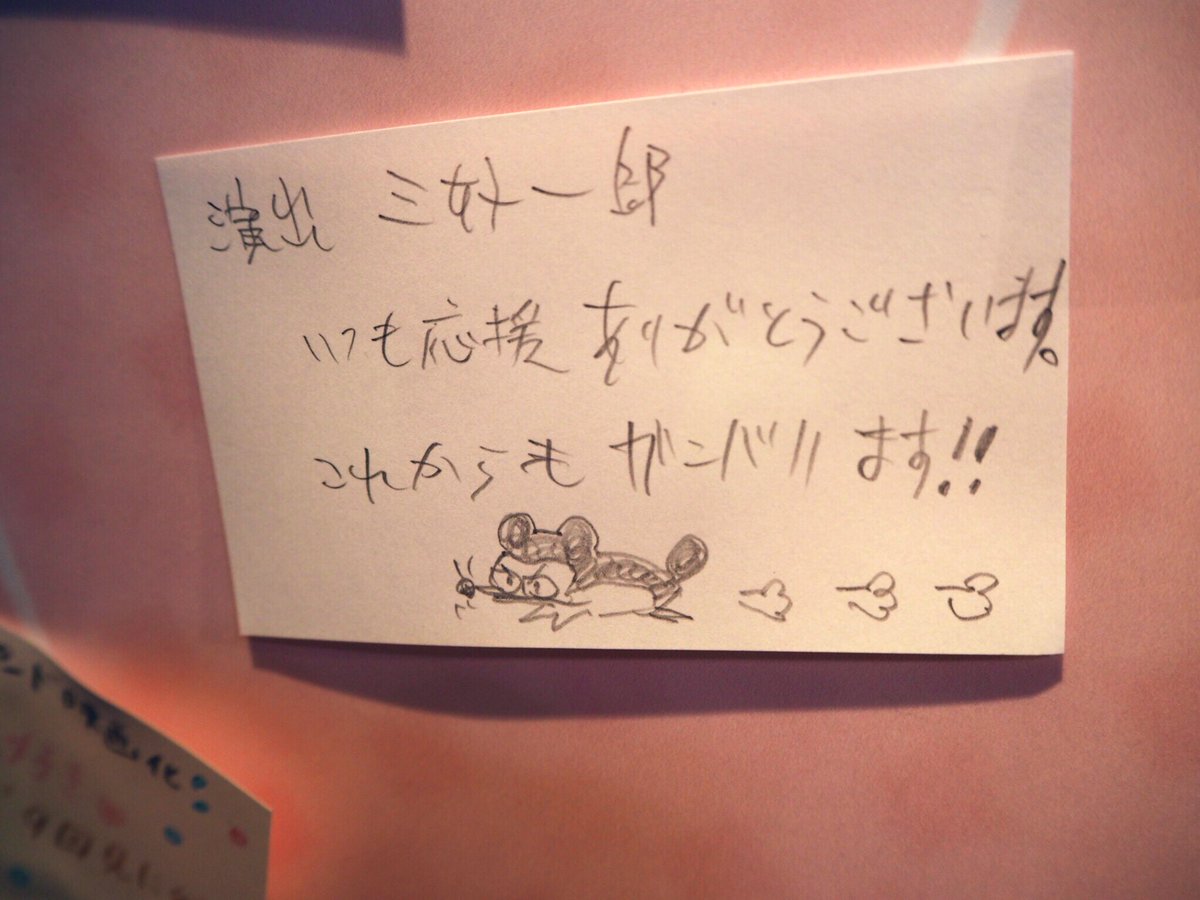 演出 三好一郎
いつも応援ありがとうございます。
これからもガンバリます!!
映画化!